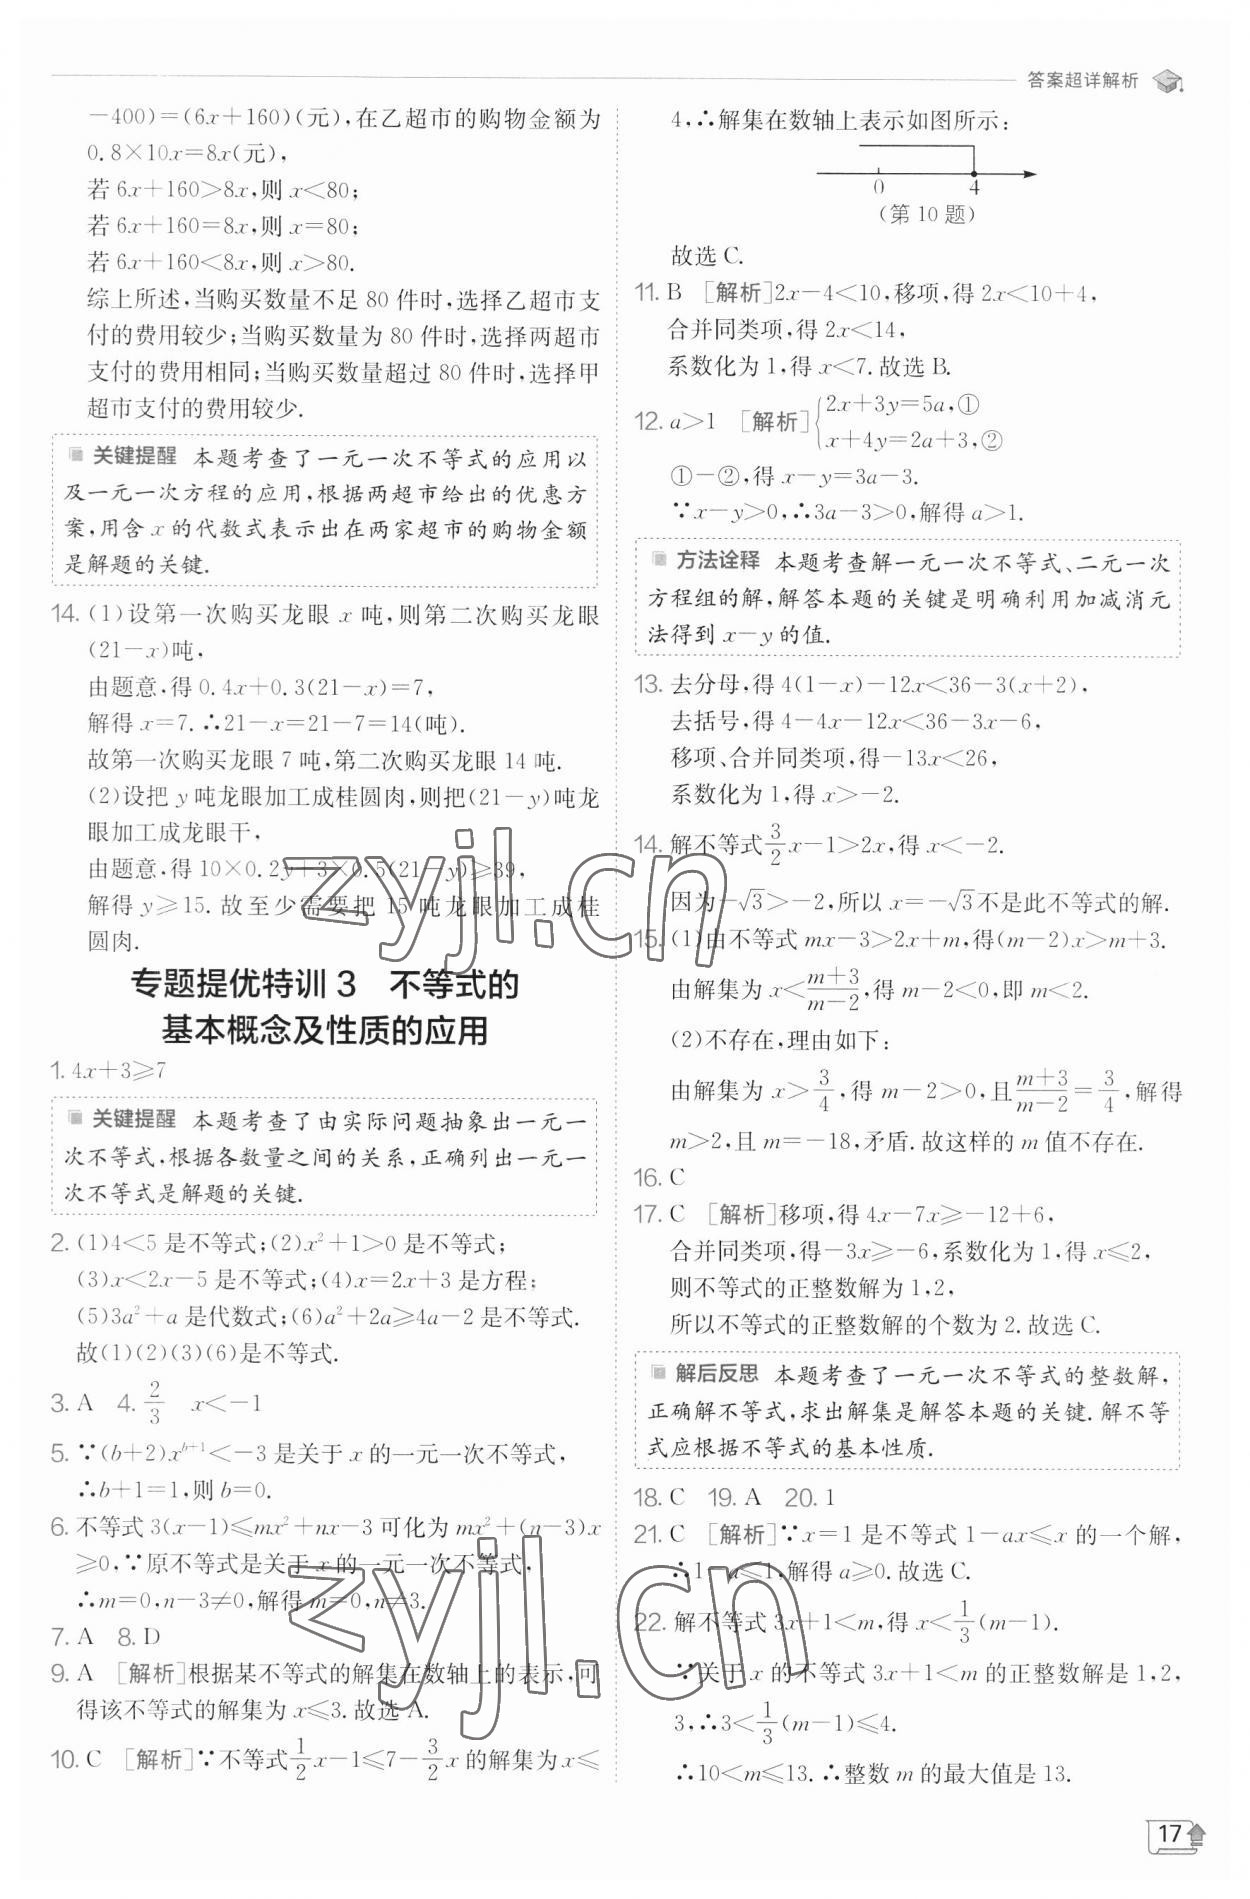 答案超详解析
-400)=(6x+160)(元),在乙超市的购物金额为
0.8×10x=8x(元),
若6x+160>8x,则x<80;
若6x+160=8x,则x=80;
若6x+160<8x,则x>80.
综上所述,当购买数量不足80件时,选择乙超市支
付的费用较少;当购买数量为80件时,选择两超市
支付的费用相同;当购买数量超过80件时,选择甲
超市支付的费用较少.
关键提醒 本题考查了一元一次不等式的应用以
及一元一次方程的应用,根据两超市给出的优惠方
案,用含x的代数式表示出在两家超市的购物金额
是解题的关键.
14.(1)设第一次购买龙眼x吨,则第二次购买龙眼
(21-x)吨,
由题意,得0.4x+0.3(21-x)=7,
解得x=7.∴21-x=21-7=14(吨).
故第一次购买龙眼7吨,第二次购买龙眼14吨.
(2)设把y吨龙眼加工成桂圆肉,则把(21-y)吨龙
眼加工成龙眼干,
由题意,得10×0.2y+3×0.5(21-y)≥39,
解得y≥15.故至少需要把15吨龙眼加工成桂
圆肉.
专题提优特训3 不等式的
基本概念及性质的应用
1.4x+3≥7
关键提醒 本题考查了由实际问题抽象出一元一
次不等式,根据各数量之间的关系,正确列出一元一
次不等式是解题的关键.
2.(1)4<5是不等式;(2)x²+1>0是不等式;
(3)x<2x-5是不等式;(4)x=2x+3是方程;
(5)3a²+a是代数式;(6)a²+2a≥4a-2是不等式.
故(1)(2)(3)(6)是不等式.
3.A 4.2/3 x<-1
5.∵(b+2)x^(b+1)<-3是关于x的一元一次不等式,
∴b+1=1,则b=0.
6.不等式3(x-1)≤mx²+nx-3可化为mx²+(n-3)x
≥0,∵原不等式是关于x的一元一次不等式,
∴m=0,n-3≠0,解得m=0,n≠3.
7.A 8.D
9.A [解析]根据某不等式的解集在数轴上的表示,可
得该不等式的解集为x≤3.故选A.
10.C [解析]∵不等式1/2x-1≤7-3/2x的解集为x≤
4,∴解集在数轴上表示如图所示:
0 4
(第10题)
故选C.
11.B [解析]2x-4<10,移项,得2x<10+4,
合并同类项,得2x<14,
系数化为1,得x<7.故选B.
12.a>1 [解析]{2x+3y=5a,①
x+4y=2a+3,②
①-②,得x-y=3a-3.
∵x-y>0,∴3a-3>0,解得a>1.
方法诠释 本题考查解一元一次不等式、二元一次
方程组的解,解答本题的关键是明确利用加减消元
法得到x-y的值.
13.去分母,得4(1-x)-12x<36-3(x+2),
去括号,得4-4x-12x<36-3x-6,
移项、合并同类项,得-13x<26,
系数化为1,得x>-2.
14.解不等式3/2x-1>2x,得x<-2.
因为-√3>-2,所以x=-√3不是此不等式的解.
15.(1)由不等式mx-3>2x+m,得(m-2)x>m+3.
由解集为x<(m+3)/(m-2),得m-2<0,即m<2.
(2)不存在,理由如下:
由解集为x>3/4,得m-2>0,且(m+3)/(m-2)=3/4,解得
m>2,且m=-18,矛盾.故这样的m值不存在.
16.C
17.C [解析]移项,得4x-7x≥-12+6,
合并同类项,得-3x≥-6,系数化为1,得x≤2,
则不等式的正整数解为1,2,
所以不等式的正整数解的个数为2.故选C.
解后反思 本题考查了一元一次不等式的整数解,
正确解不等式,求出解集是解答本题的关键.解不等
式应根据不等式的基本性质.
18.C 19.A 20.1
21.C [解析]∵x=1是不等式1-ax≤x的一个解,
∴1-a≤1,解得a≥0.故选C.
22.解不等式3x+1<m,得x<1/3(m-1).
∵关于x的不等式3x+1<m的正整数解是1,2,
3,∴3<1/3(m-1)≤4.
∴10<m≤13.∴整数m的最大值是13.
17
zyjl.cn
zyjl.cn